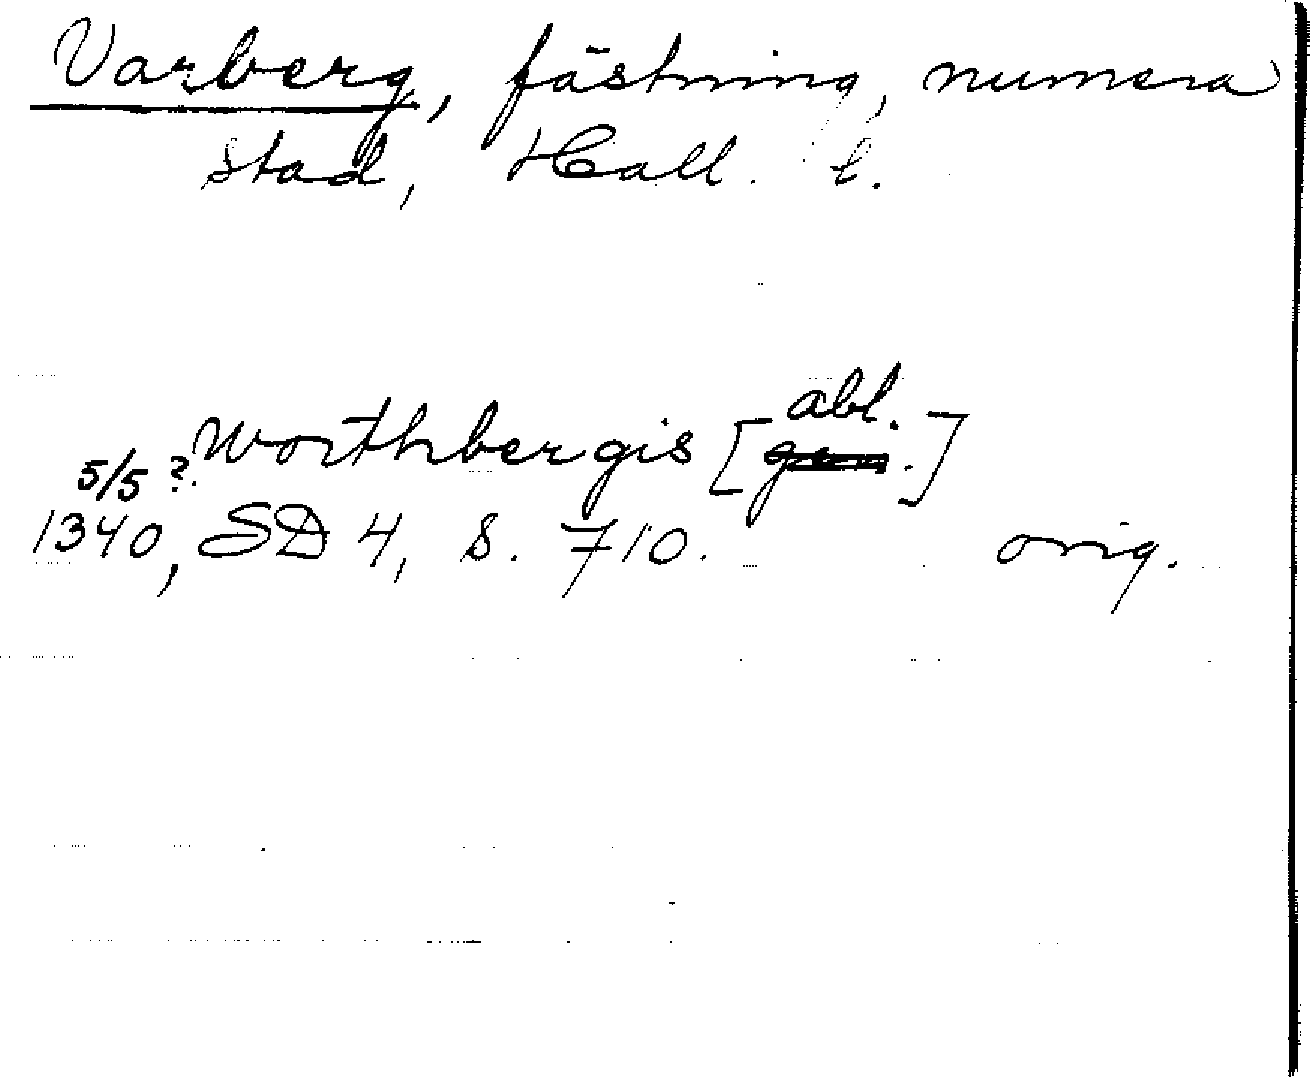 Varberg, fästning, numera
stad, Hall. l.
Worthbergis [abl.]
5/5 ?
1340, SD 4, s. 710. orig.